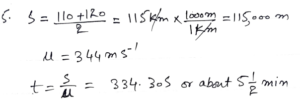 5. S = 110+120/2 = 115 km × 1000m/1km = 115,000 m
u = 344 m s⁻¹
t = S/u = 334.30S or about 5 1/2 min